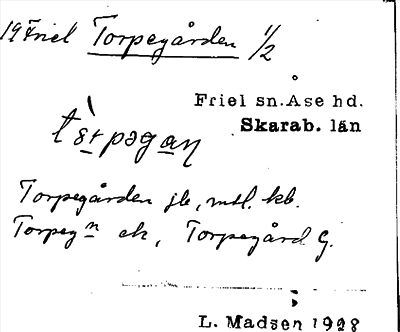 19 Friel Torpegården 1/2
Friel sn. Åse hd.
Skarab. län
Torpegården jb, mtl. kb.
Torpegn ek, Torpegård G.
L. Madsen 1928